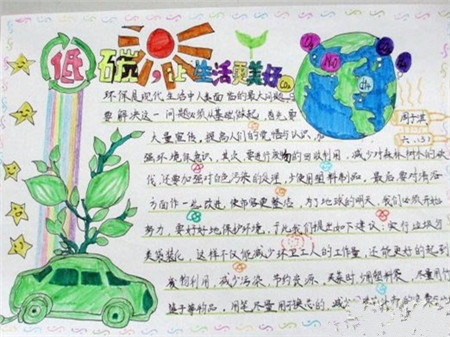 低碳,让生活更美好
CO₂
NO
CH₄
周子淇
六.(3)
环保是现代生活中人类面临的最大问题
要解决这一问题必须从基础做起,首先要
大量宣传,提高人们的觉悟与认识,
强环境保意识,其次,要进行废物的回收利用,减少对森林树木的砍
伐,还要加强对白色污染的处理,少使用塑料制品,最后要对清洁
方面作一些改进,使你容更整洁,为了地球的明天,我们必须开始
努力,要好好地保护环境,在此我们提出如下建议:实行垃圾分
类袋装化,这样不仅能减少环卫工人的工作量,还能更好的起到
废物利用,减少污染,节约资源,买菜时,少用塑料袋,尽量用竹
篮子等物品,用笔尽量用可换芯的,减少